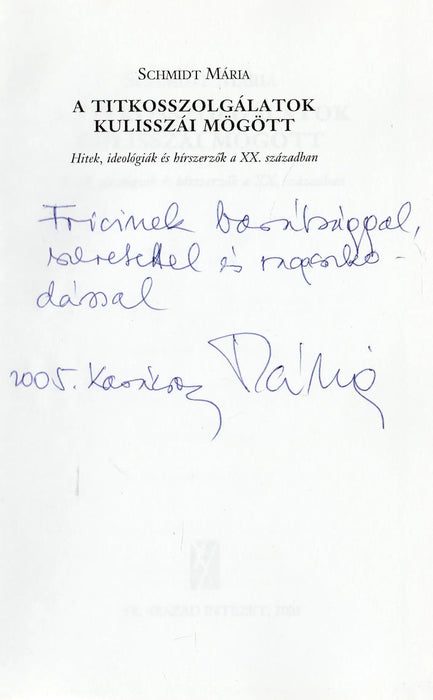 SCHMIDT MÁRIA
A TITKOSSZOLGÁLATOK
KULISSZÁI MÖGÖTT
Hitek, ideológiák és hírszerzők a XX. században
Fricinek barátsággal,
szeretettel és ragaszko-
dással
2005. Karácsony Mária
XX. SZÁZAD INTÉZET, 2005